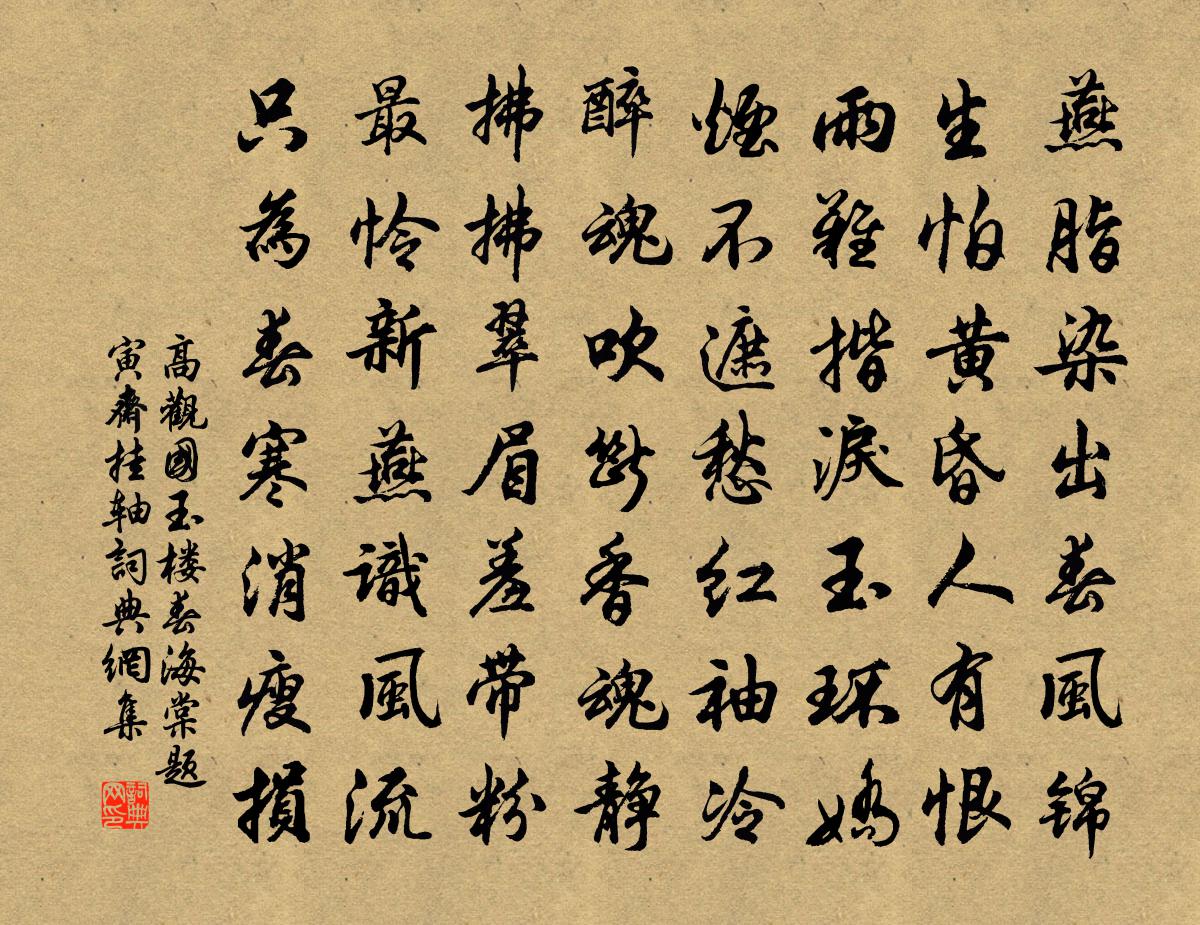 燕脂染出春風锦
生怕黄昏人有恨
雨難揩淚玉環嬌
煙不遮愁红袖冷
醉魂吹斷香魂静
拂拂翠眉羞带粉
最怜新燕識風流
只為春寒消瘦損
高觀國玉楼春海棠题
寅齋挂轴詞典網集
詞典网印